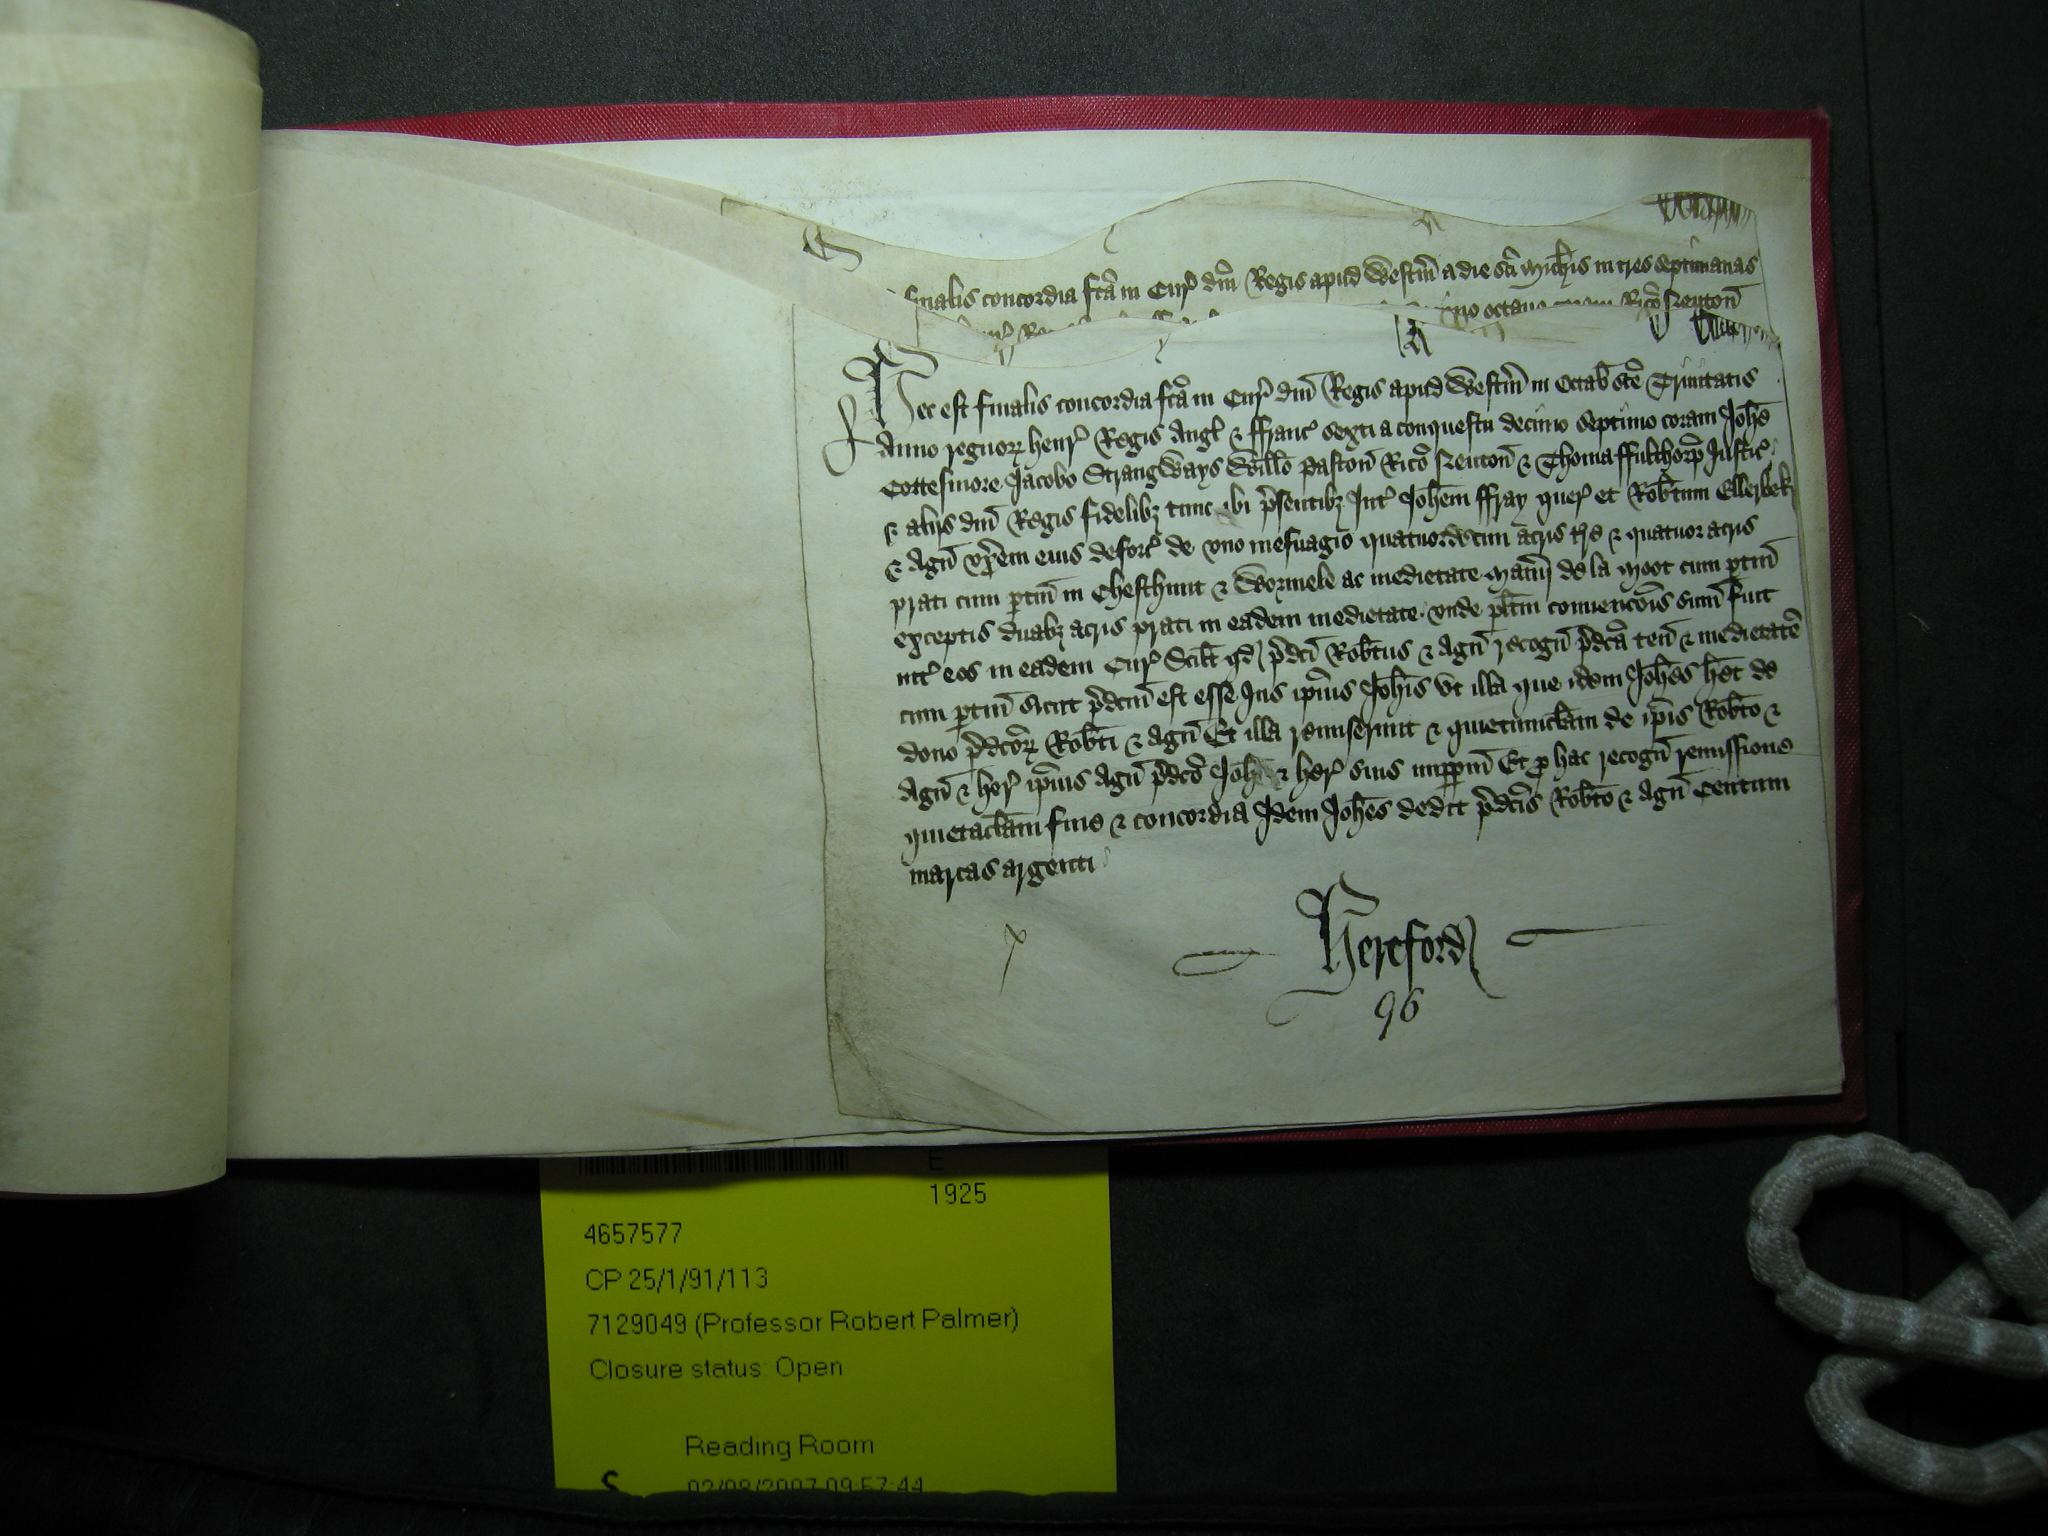 finalis concordia fcã in Cur' dñi Regis apud Westm̃ a die Sc̃i Mich̃is in tres septimanas
octauo coram Ric̃o Neutoñ
Hec est finalis concordia fcã in Cur' dñi Regis apud Westm̃ in Octab̃ Sc̃e Trinitatis
Anno regnoꝝ Henr' Regis Angł & Franc' sexti a conquestu decimo septimo coram Joh̃e
Cottesmore Jacobo Strangways Wiłło Pastoñ Ric̃o Neutoñ & Thoma ffulthorp̃ Justic'
& alijs dñi Regis fidelibꝫ tunc ibi p̃sentibꝫ Int' Joh̃em ffray quer' et Rob̃tum Ellerbek
& Agñ vx̃em eius deforc' de vno mesuagio quatuordecim acris tr̃e & quatuor acris
prati cum ptiñ in Chesthunt & Wormele ac medietate Mañij de la Moot cum ptiñ
exceptis duabꝫ acris prati in eadem medietate vnde płitm conuenc̃õis sum̃ fuit
int' eos in eadem Cur' Scilt qđ p̃dc̃i Rob̃tus & Agñ recogñ p̃dc̃a teñ & medietatẽ
cum ptiñ sicut p̃dc̃m est esse Jus ip̃ius Joh̃is vt illa que idem Joh̃es h̃et de
dono p̃dc̃oꝝ Rob̃ti & Agñ Et illa remiserunt & quietumclam̃ de ip̃is Rob̃to &
Agñ & her' ip̃ius Agñ p̃dc̃o Joh̃i & her' suis imppm̃ Et p hac recogñ remissione
quietaclam̃ fine & concordia Idem Joh̃es dedit p̃dc̃is Rob̃to & Agñ Centum
marcas argenti
Hereford
96
E
1925
4657577
CP 25/1/91/113
7129049 (Professor Robert Palmer)
Closure status: Open
Reading Room
S
02/08/2007 09:57:44